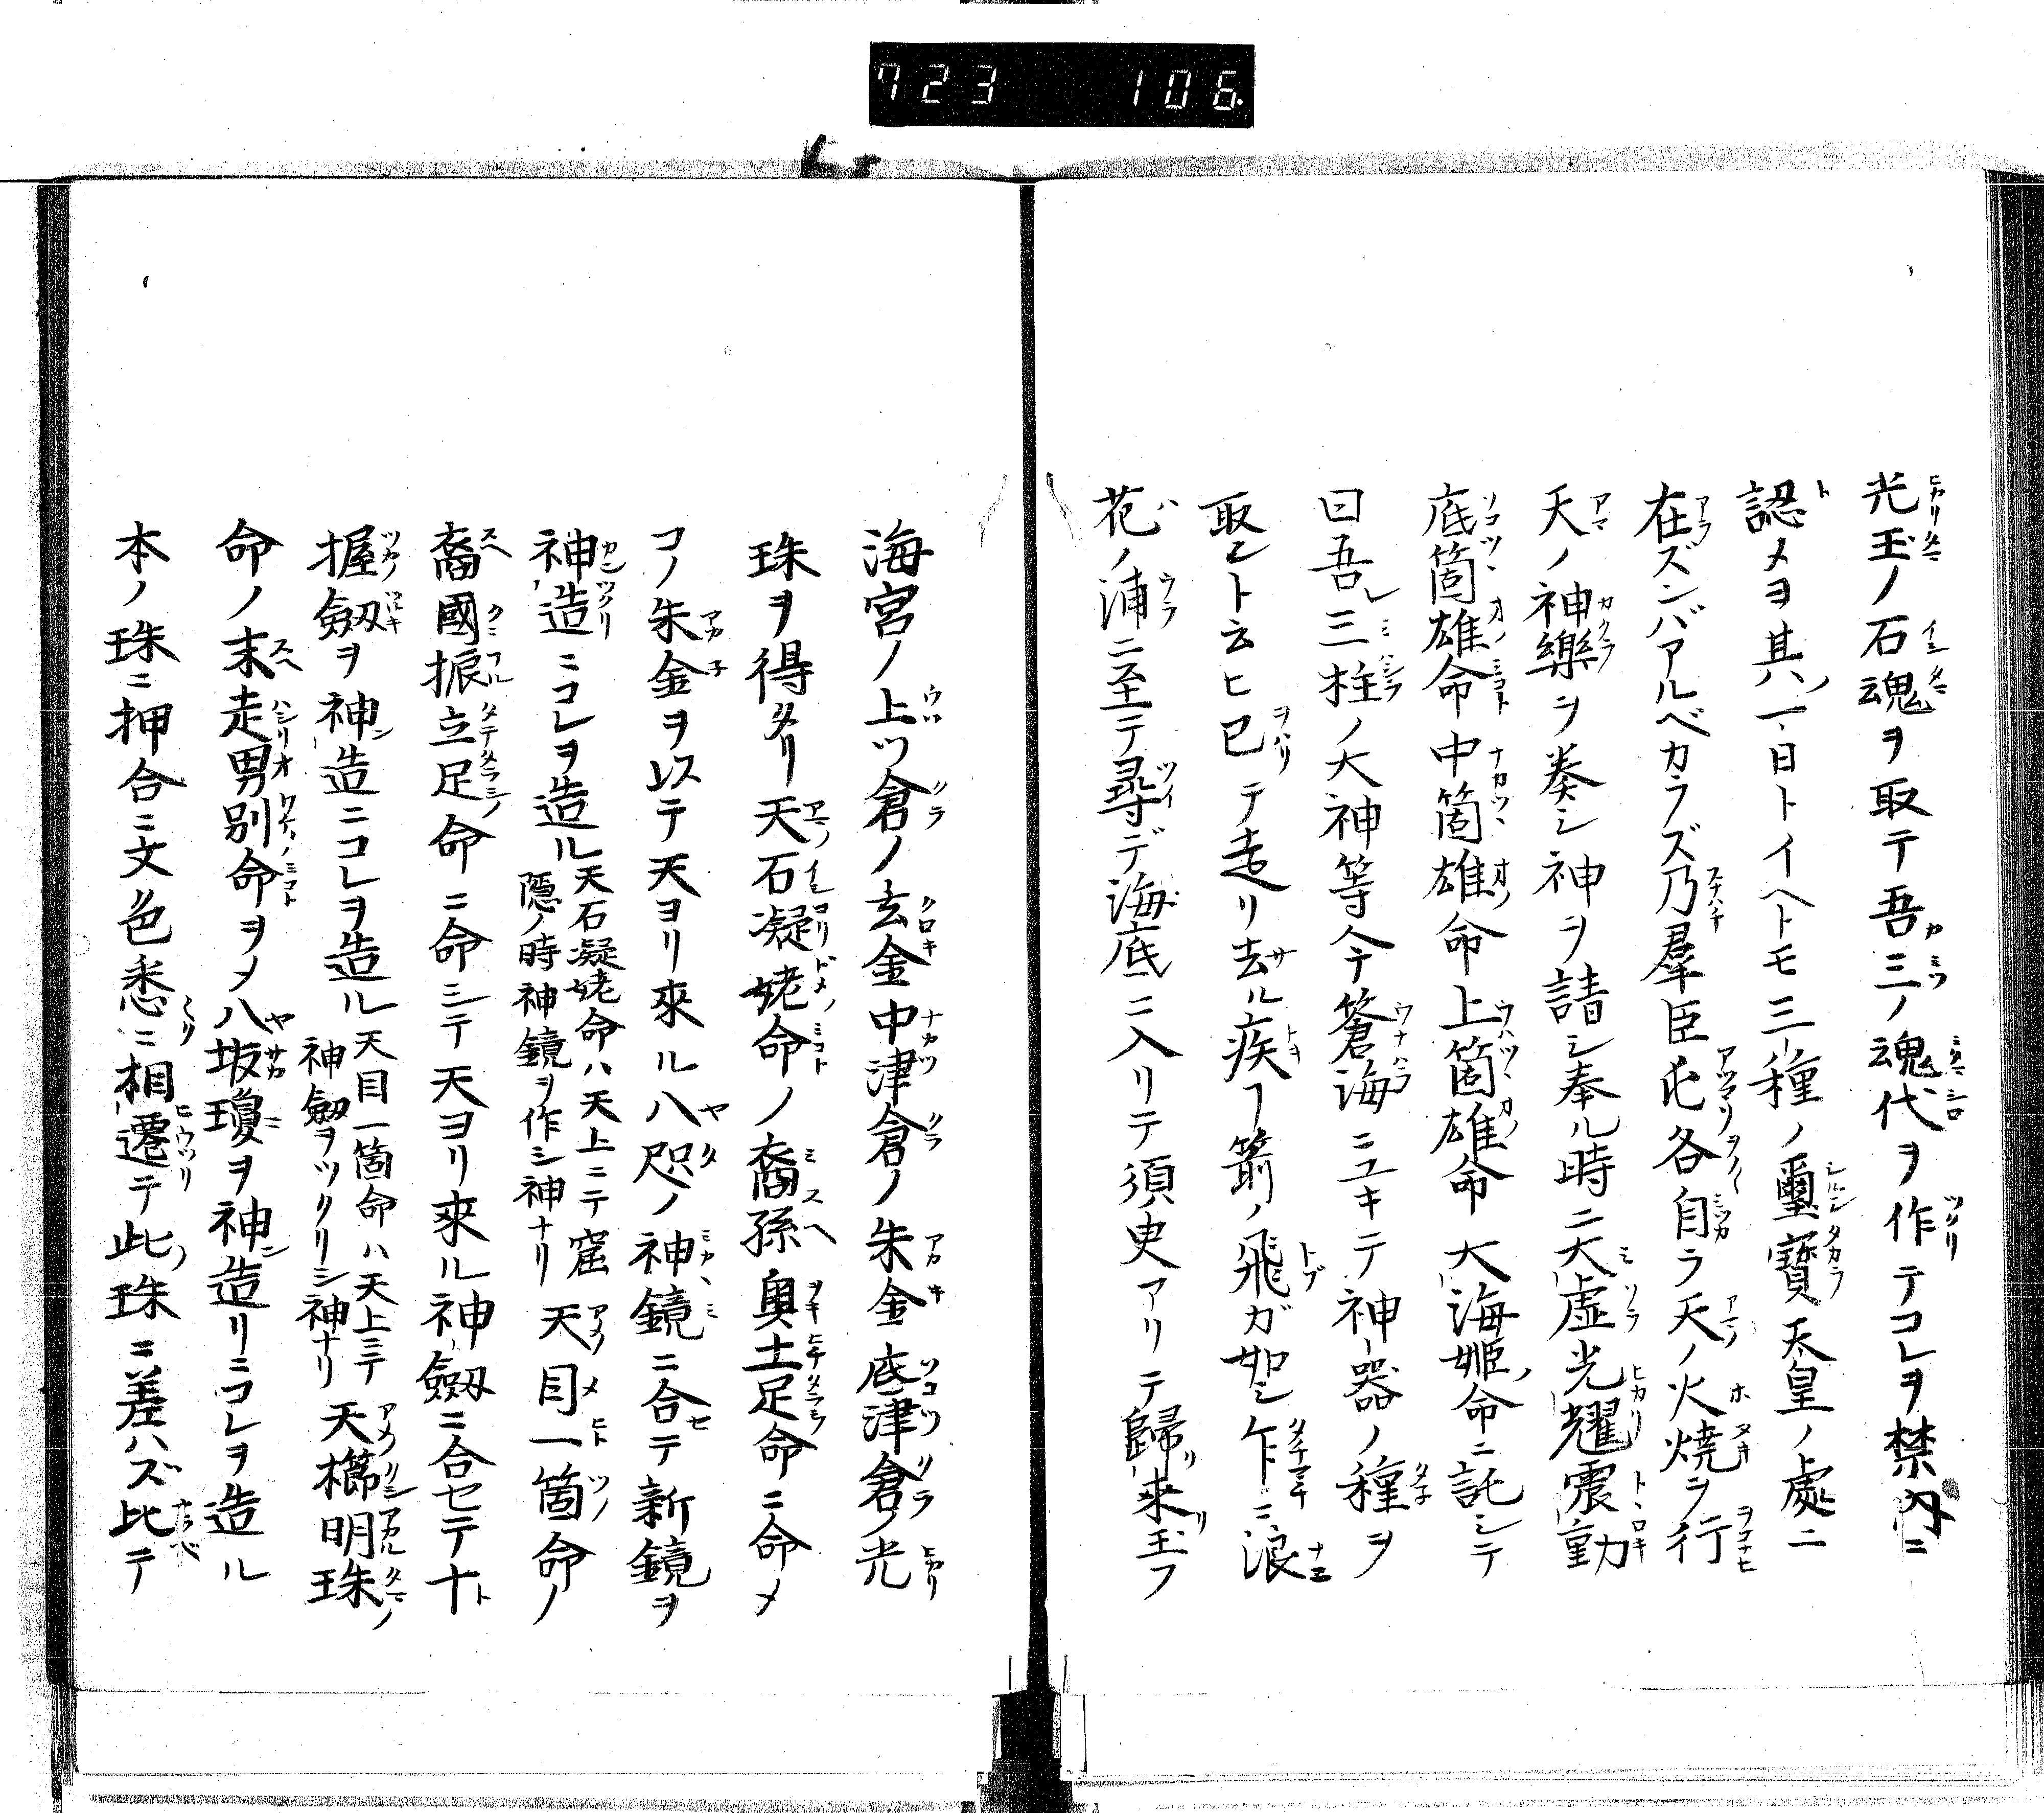 723 106
光玉ノ石魂ヲ取テ吾三ノ魂代ヲ作テコレヲ禁内ニ
認メヨ其八一日トイヘトモ三種ノ璽寶天皇ノ處ニ
在ズンバアルベカラズ乃羣臣各自ラ天ノ火燒ヲ行
天ノ神樂ヲ奏シ神ヲ請シ奉ル時ニ大虚光耀震動
底箇雄命中箇雄命上箇雄命大海姫命ニ託シテ
曰吾三柱ノ大神等今蒼海ニユキテ神器ノ種ヲ
取ントムヒ已テ走リ去ル疾ヿ箭ノ飛ガ如シ乍ニ浪
花ノ浦ニ至テ尋デ海底ニ入リテ須臾アリテ歸来玉フ
海宮ノ上ツ倉ノ玄金中津倉ノ朱金底津倉ノ光
珠ヲ得タリ天石凝姥命ノ裔孫奥士足命ニ命メ
コノ朱金ヲ以テ天ヨリ來ル八咫ノ神鏡ニ合テ新鏡ヲ
神造ニコレヲ造ル天石凝姥命ハ天上ニテ窟
隱ノ時神鏡ヲ作シ神ナリ天目一箇命ノ
裔國振立足命ニ命シテ天ヨリ來ル神劔ニ合セテ十
握劔ヲ神造ニコレヲ造ル天目一箇命ハ天上ニテ
神劔ヲツクリシ神ナリ天櫛明珠
命ノ末走男別命ヲメ八坂瓊ヲ神造リニコレヲ造ル
本ノ珠ニ押合ニ文色悉ニ相遷テ此珠ニ差ハズ比テ